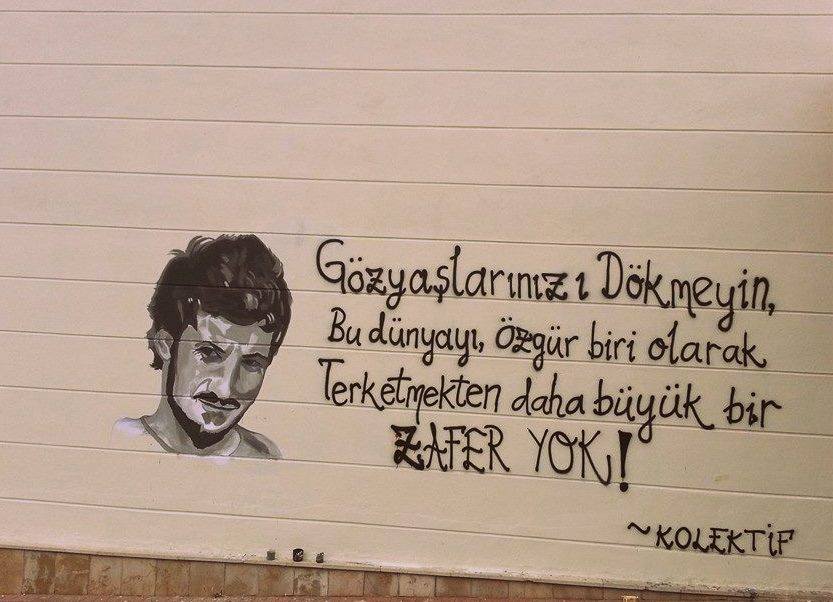 Gözyaşlarınızı Dökmeyin,
Bu dünyayı, özgür biri olarak
Terketmekten daha büyük bir
ZAFER YOK!
~KOLEKTİF